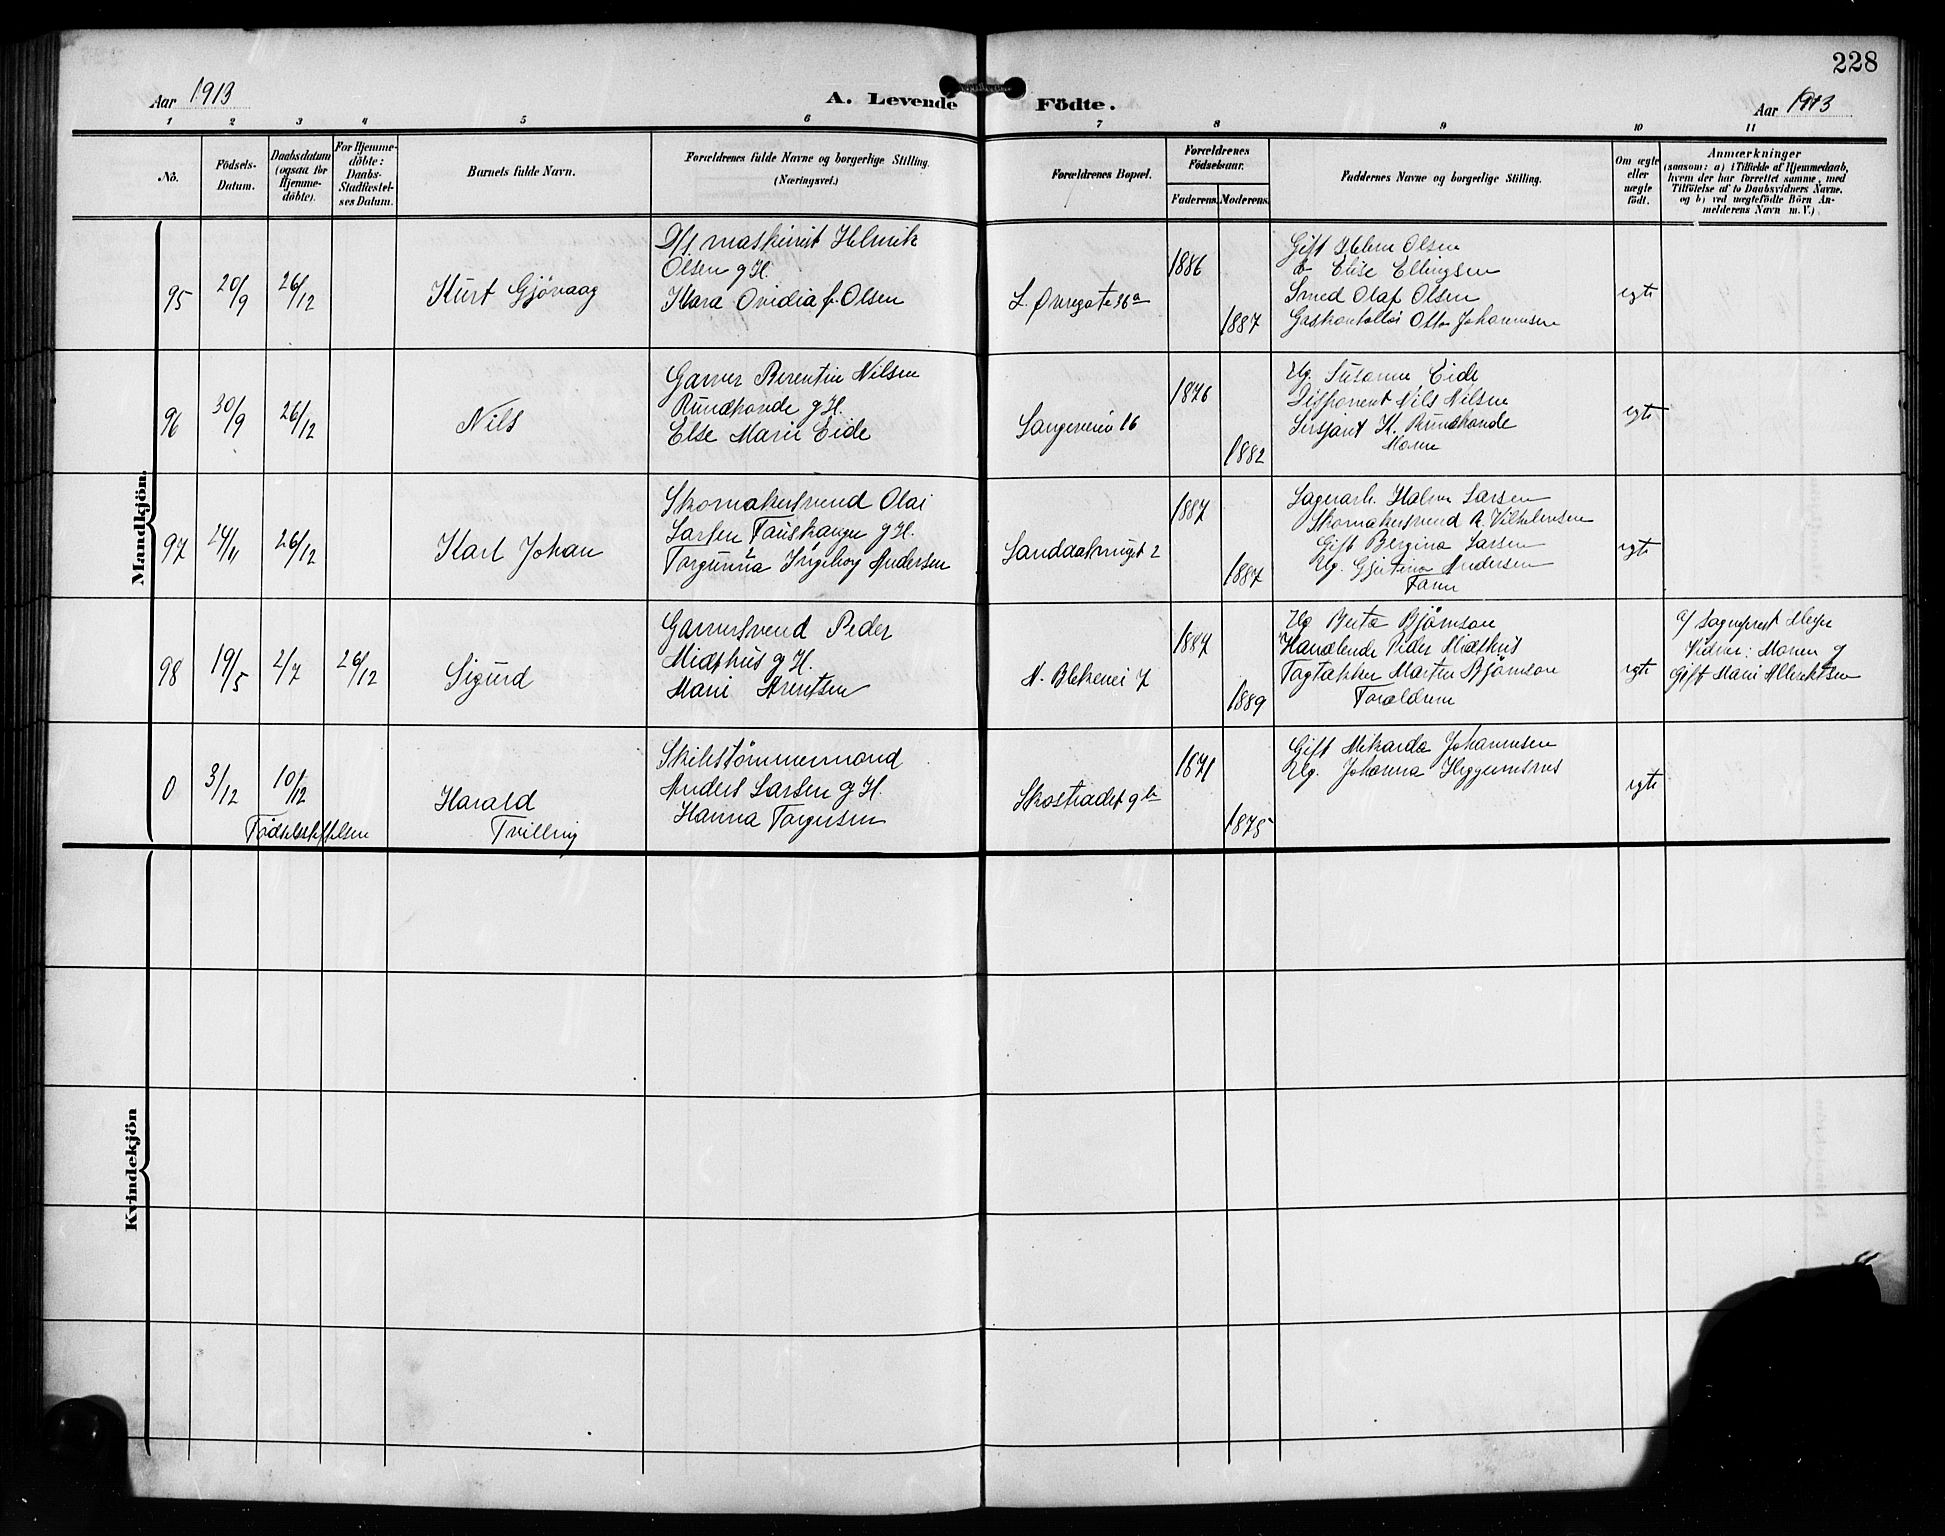 228
Aar 1913
A. Levende Födte.
Aar 1913
1 2 3 4 5 6 7 8 9 10 11
No.
Födsels-Datum.
Daabsdatum (ogsaa for Hjemme-döbte).
For Hjemme-döbte: Daabs-Stadfæstel-ses Datum.
Barnets fulde Navn.
Forældrenes fulde Navne og borgerlige Stilling.
(Næringsvei.)
Forældrenes Bopæl.
Forældrenes Födselsaar.
Faderens. Moderens.
Faddernes Navne og borgerlige Stilling.
Om ægte eller uægte födt.
Anmærkninger
(saasom: a) i Tilfælde af Hjemmedaab,
hvem der har forrettet samme, med
Tilföielse af to Daabsvidners Navne.
og b) ved uægtefödte Börn An-
melderens Navn m. V.).
Mandkjön.
95 20/9 26/12 Kurt Gjövaag
D/s maskinist Helmik
Olsen g H.
Kara Ovidia f. Olsen
L. Øvregate 36a
1886
1887
Gift Helene Olsen
Elise Ellingsen
Smed Olaf Olsen
Gaskontollör Otto Johannesen
egte
96 30/9 26/12 Nils
Garver Berentin Nilsen
Rundhovde g H.
Else Marie Eide
Langeveien 16
1876
1882
Ug. Susanne Eide
Disponent Nils Nilsen
Sersjant H. Rundhovde
Moren
egte
97 24/11 26/12 Karl Johan
Skomakersvend Olai
Larsen Fauskanger g H.
Torgunna Ingeborg Andersen
Sanddalsmugt 2
1887
1887
Lagerarb. Halvor Larsen
Skomakersvend R. Vilhelmsen
Gift Bergina Larsen
Ug. Gjertine Andersen
Faren
egte
98 19/5 2/7 26/12 Sigurd
Garversvend Peder
Midthus g H.
Marie Arentsen
N. Blekevei 7
1887
1889
Ug Berta Bjørnson
Handlende Peder Midthus
Tagtækker Martin Bjørnson
Forældrene
egte
af Sogneprest Meyer
Vidner: Moren og
Gift Marie Albrektsen
0 3/12 10/12 Harald
Fødselsstiftelsen
Tvilling
Skibstømmermand
Anders Larsen g H.
Hanna Torgersen
Skostrædet 9b
1871
1875
Gift Mikarda Johannesen
Ug. Johanna Heggernesnes
egte
Kvindekjön